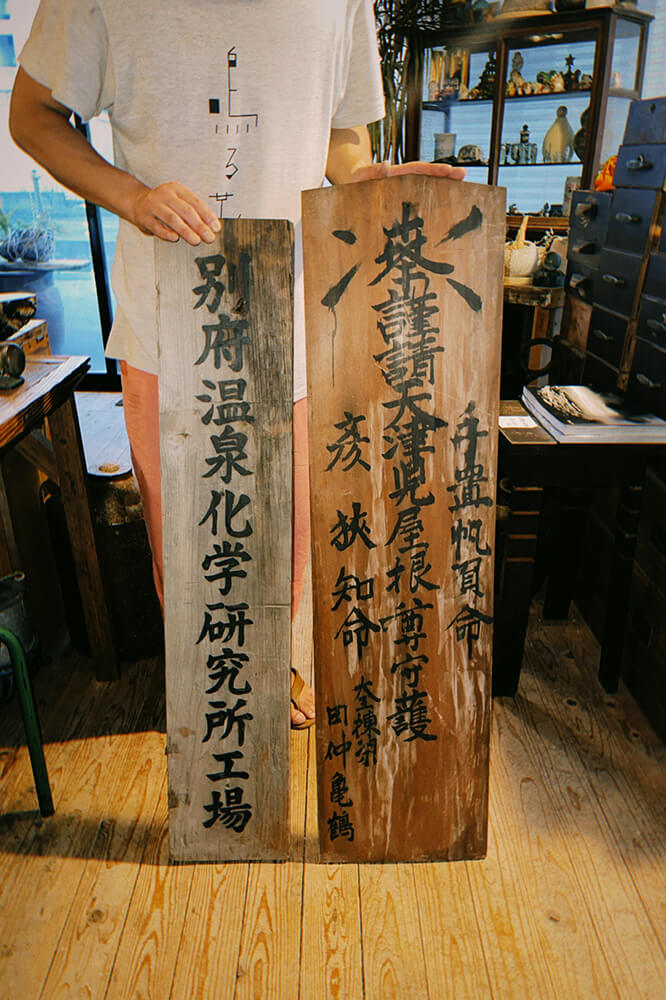 手置帆負命
奉謹請天津児屋根尊守護
彦狹知命
大工棟梁
田仲亀鶴
別府温泉化学研究所工場